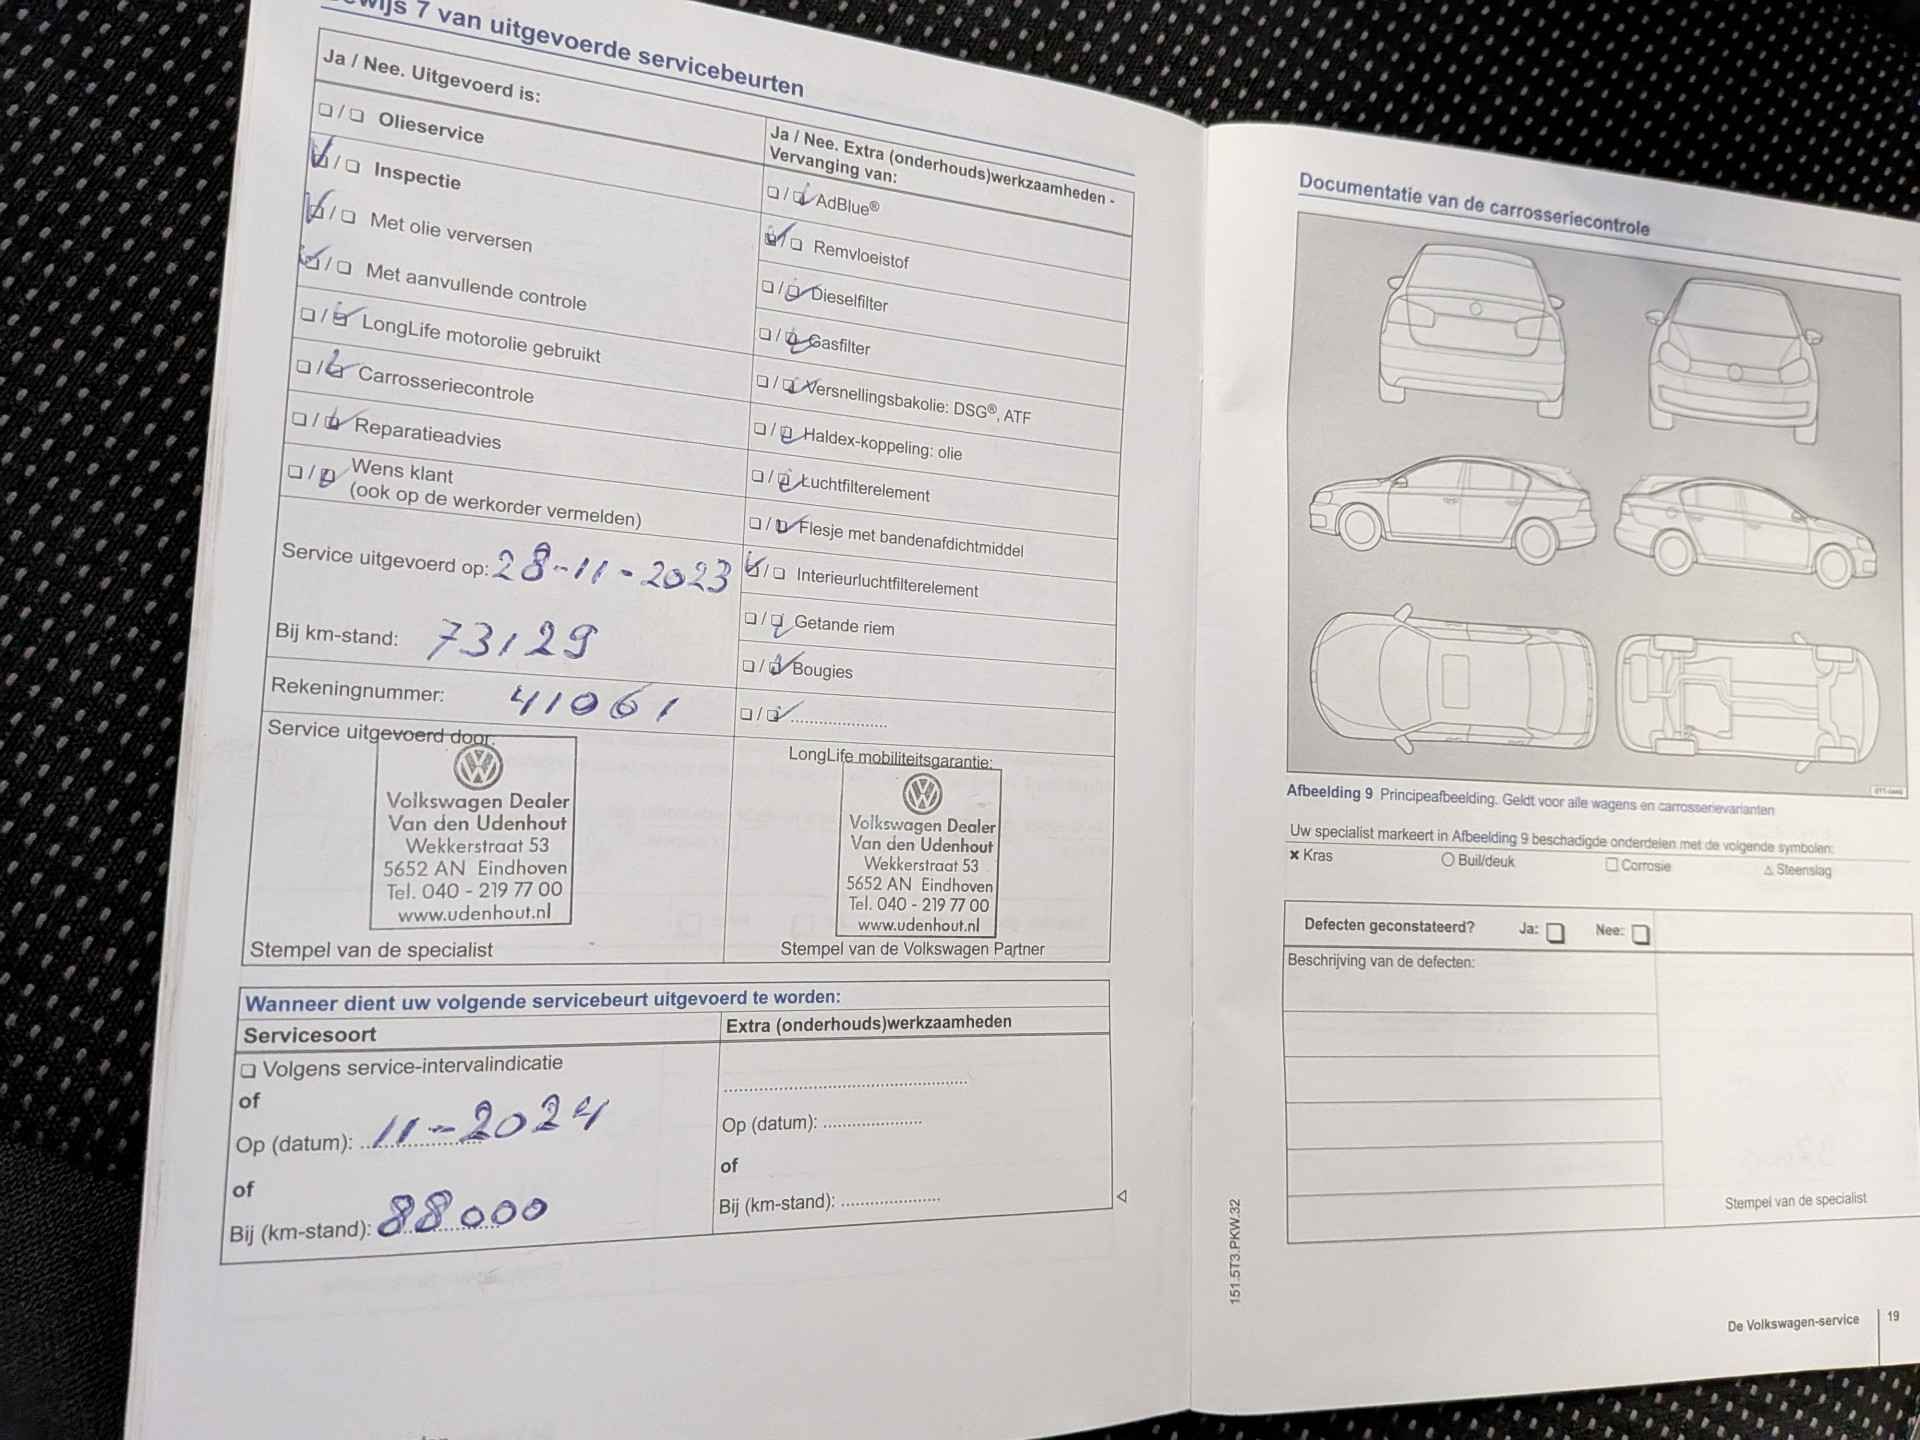 7 van uitgevoerde servicebeurten
Ja / Nee. Uitgevoerd is:
❏ / ❏ Olieservice
☑ / ❏ Inspectie
☑ / ❏ Met olie verversen
☑ / ❏ Met aanvullende controle
❏ / ☑ LongLife motorolie gebruikt
❏ / ☑ Carrosseriecontrole
❏ / ☑ Reparatieadvies
❏ / ☑ Wens klant
(ook op de werkorder vermelden)
Service uitgevoerd op: 28-11-2023
Bij km-stand: 73129
Rekeningnummer: 41061
Service uitgevoerd door:
Volkswagen Dealer
Van den Udenhout
Wekkerstraat 53
5652 AN Eindhoven
Tel. 040 - 219 77 00
www.udenhout.nl
Stempel van de specialist
Ja / Nee. Extra (onderhouds)werkzaamheden -
Vervanging van:
❏ / ☑ AdBlue®
☑ / ❏ Remvloeistof
❏ / ☑ Dieselfilter
❏ / ☑ Gasfilter
❏ / ☑ Versnellingsbakolie: DSG®, ATF
❏ / ☑ Haldex-koppeling: olie
❏ / ☑ Luchtfilterelement
❏ / ☑ Flesje met bandenafdichtmiddel
☑ / ❏ Interieurluchtfilterelement
❏ / ☑ Getande riem
❏ / ☑ Bougies
❏ / ☑ .....................
LongLife mobiliteitsgarantie:
Volkswagen Dealer
Van den Udenhout
Wekkerstraat 53
5652 AN Eindhoven
Tel. 040 - 219 77 00
www.udenhout.nl
Stempel van de Volkswagen Partner
Wanneer dient uw volgende servicebeurt uitgevoerd te worden:
Servicesoort
❏ Volgens service-intervalindicatie
of
Op (datum): 11-2024
of
Bij (km-stand): 88000
Extra (onderhouds)werkzaamheden
Op (datum): .....................
of
Bij (km-stand): .....................
Documentatie van de carrosseriecontrole
Afbeelding 9 Principeafbeelding. Geldt voor alle wagens en carrosserievarianten
Uw specialist markeert in Afbeelding 9 beschadigde onderdelen met de volgende symbolen:
✖ Kras ○ Buil/deuk □ Corrosie △ Steenslag
Defecten geconstateerd? Ja: ❏ Nee: ❏
Beschrijving van de defecten:
Stempel van de specialist
151.5T3.PKW.32
De Volkswagen-service 19